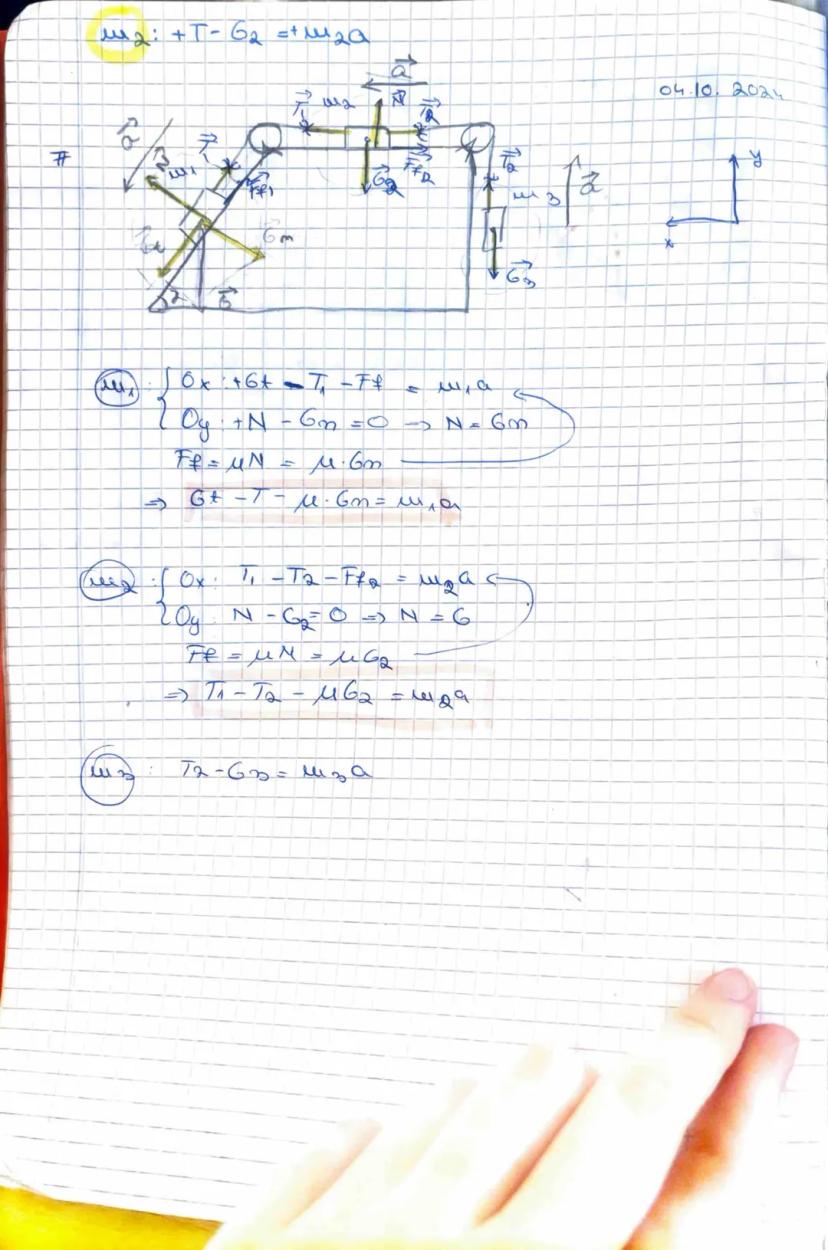 m₂: +T - G₂ = +m₂a
04.10. 2024
#
a
T₁ m₂ N T₂
a N m₁ T Ff₁ G₂ Ff₂ T₂ m₃ a y
Gt Gn x
α G G₃
m₁ : { Ox : +Gt - T₁ - Ff = m₁a
Oy : +N - Gn = 0 → N = Gn
Ff = μN = μ·Gn
⇒ Gt - T - μ·Gn = m₁a
m₂ : { Ox : T₁ - T₂ - Ff₂ = m₂a
Oy : N - G₂ = 0 ⇒ N = G
Ff = μN = μG₂
⇒ T₁ - T₂ - μG₂ = m₂a
m₃ : T₂ - G₃ = m₃a